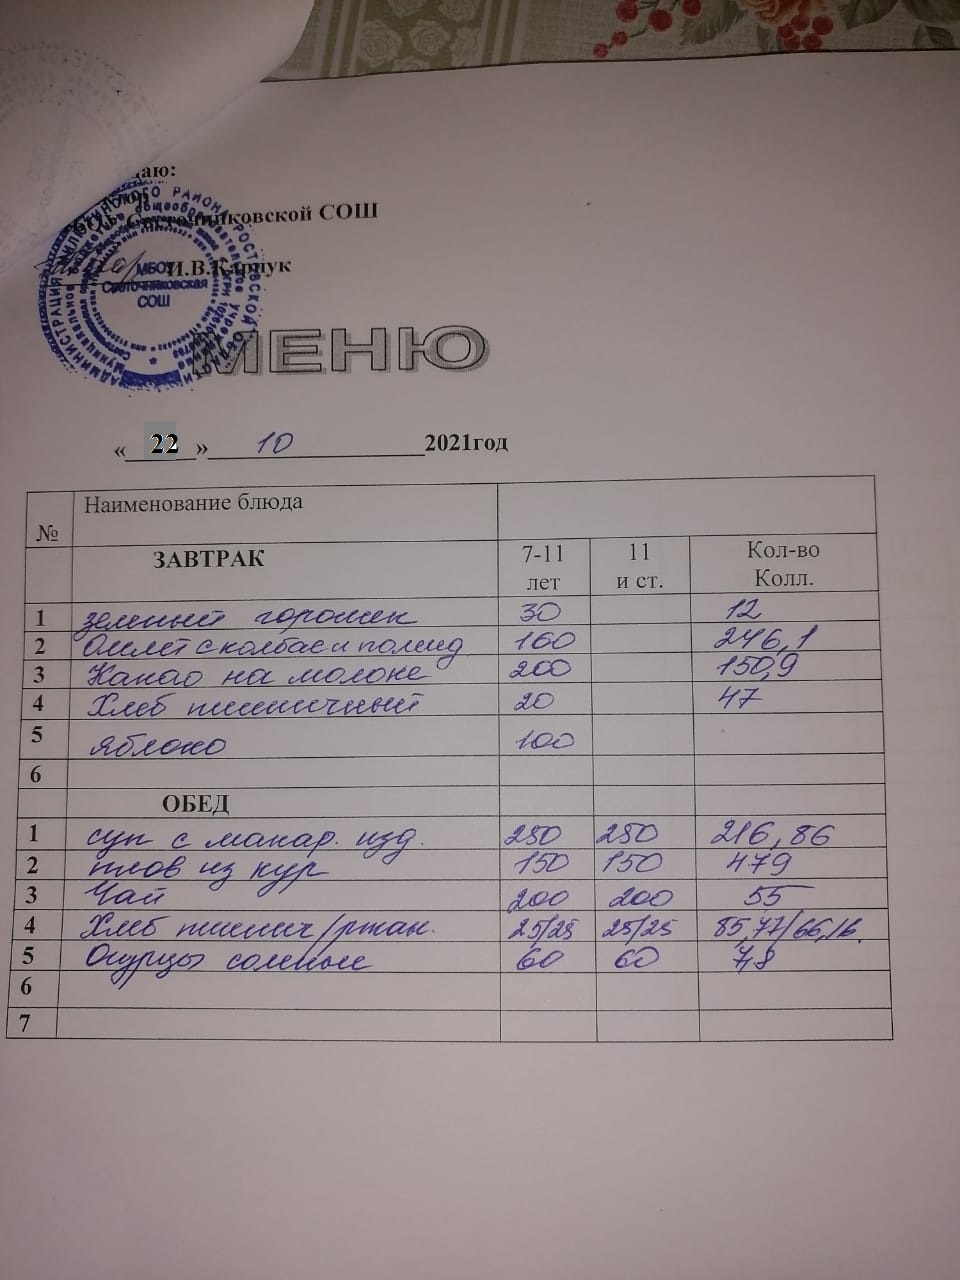 даю:
Светочниковской СОШ
И.В.Карпук
АДМИНИСТРАЦИЯ МИЛЮТИНСКОГО РАЙОНА РОСТОВСКОЙ ОБЛАСТИ
МБОУ
Светочниковская
СОШ
МЕНЮ
« 22 » 10 2021год
№ Наименование блюда
ЗАВТРАК 7-11 лет 11 и ст. Кол-во Колл.
1 зеленый горошек 30 12
2 Омлет с колбас и помид 160 246,1
3 Какао на молоке 200 150,9
4 Хлеб пшеничный 20 47
5 яблоко 100
6
ОБЕД
1 суп с макар. изд. 250 250 216,86
2 плов из кур 150 150 479
3 Чай 200 200 55
4 Хлеб пшенич/ржан. 25/25 25/25 85,77/66,16
5 Огурцы соленые 60 60 7,8
6
7